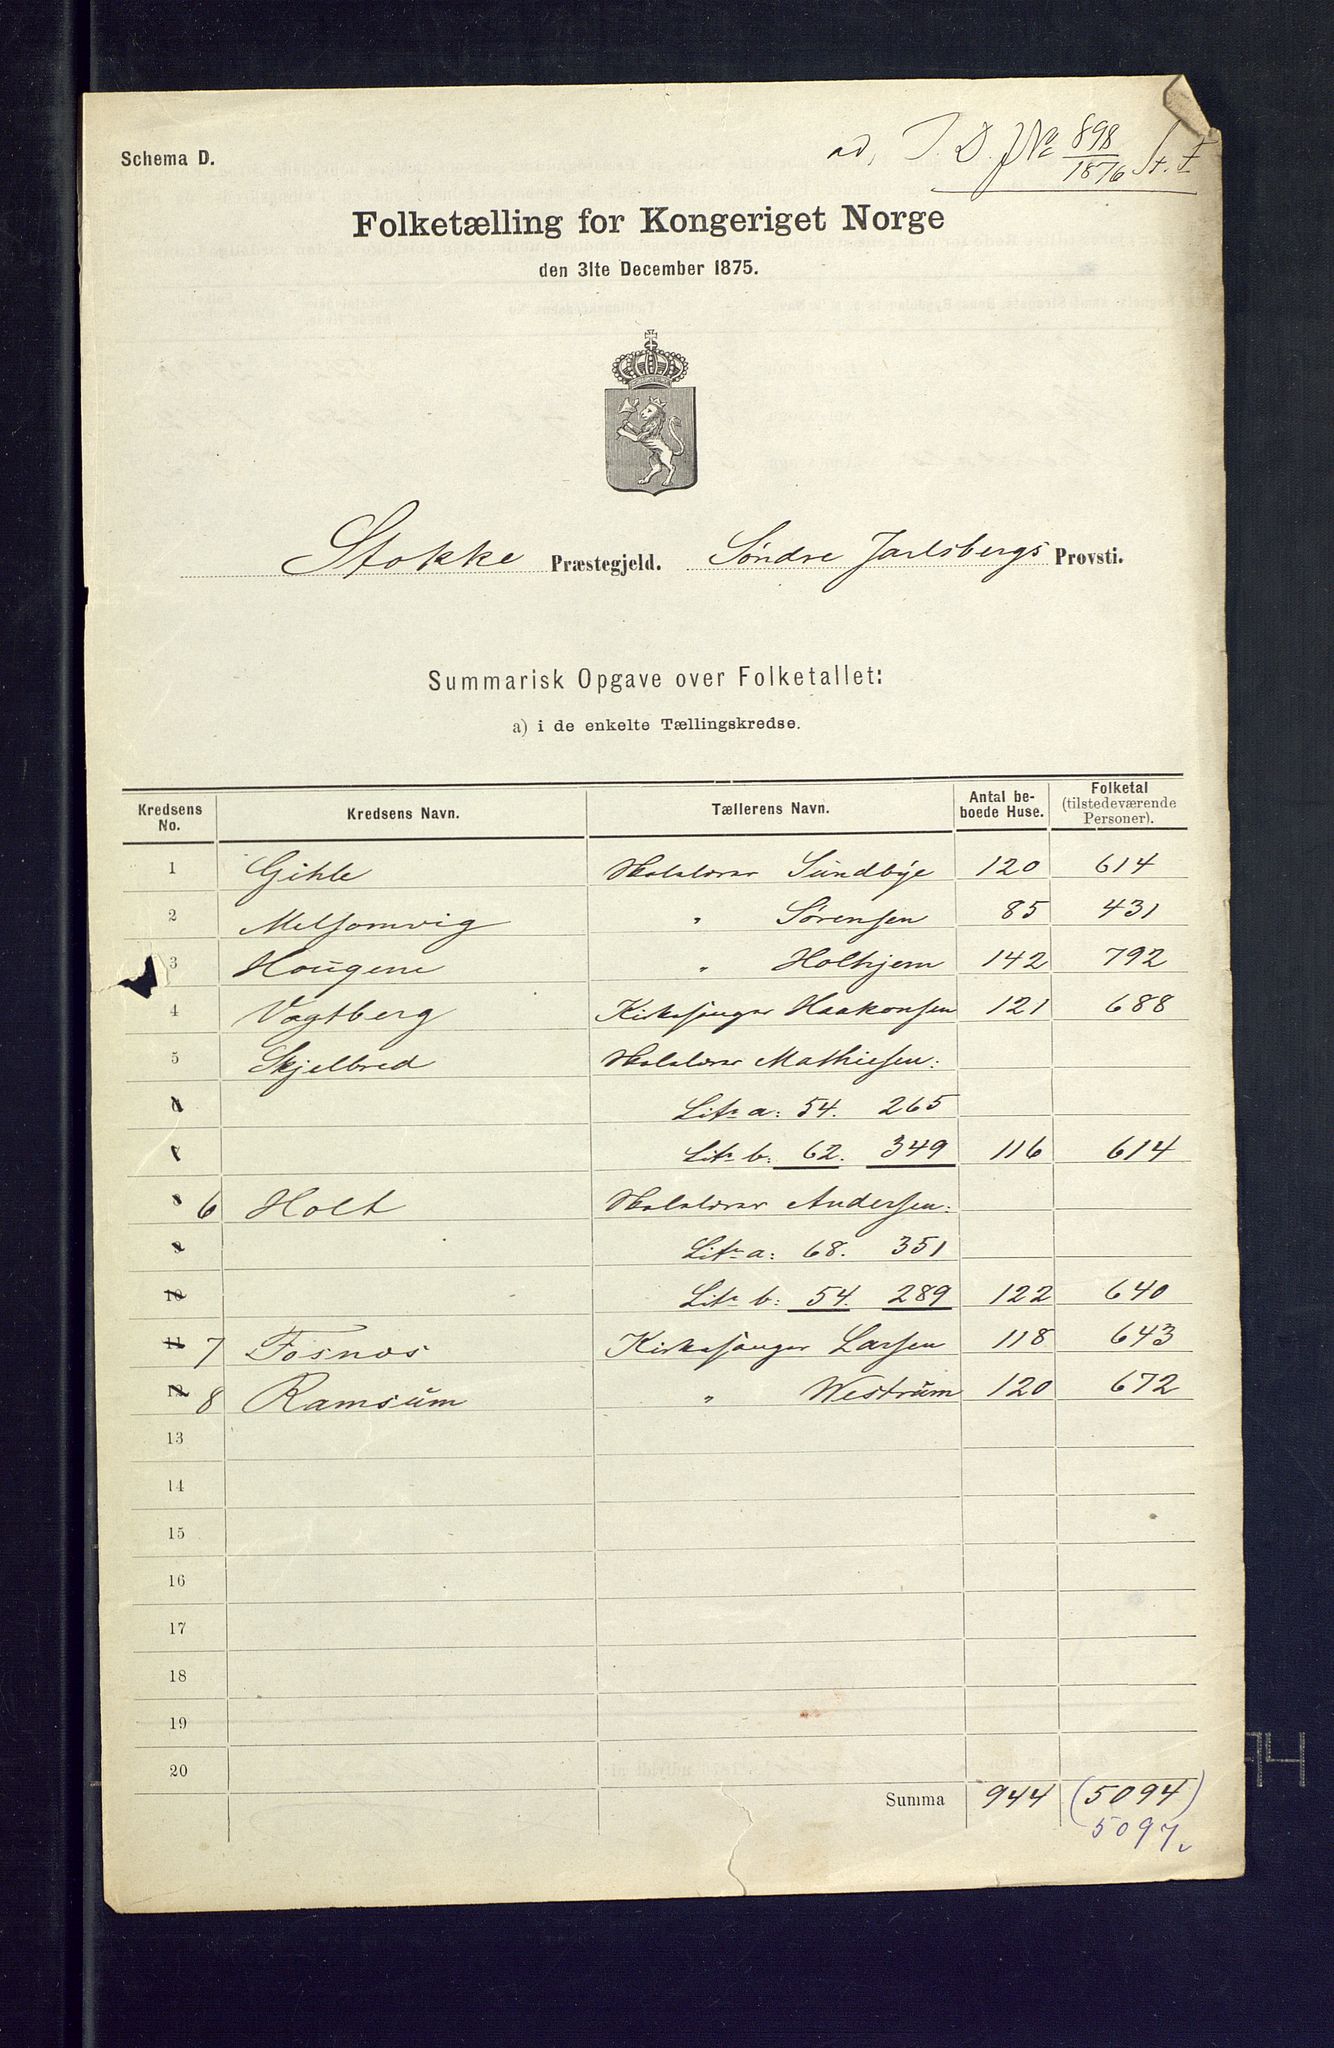 Schema D.
ad, J. D. J No 898/1876 St. F
Folketælling for Kongeriget Norge
den 31te December 1875.
Stokke Præstegjeld. Søndre Jarlsbergs Provsti.
Summarisk Opgave over Folketallet:
a) i de enkelte Tællingskredse.
Kredsens No. Kredsens Navn. Tællerens Navn. Antal beboede Huse. Folketal (tilstedeværende Personer).
1 Gihle Skolelærer Sundbye 120 614
2 Melsomvig " Sørensen 85 431
3 Hougene " Holhjem 142 792
4 Vagtberg Kirkesanger Haakonsen 121 688
5 Skjelbred Skolelærer Mathiesen:
6 Litr a: 54. 265
7 Litr b: 62. 349 116 614
8 6 Holt Skolelærer Andersen:
9 Litr a: 68. 351
10 Litr b: 54. 289 122 640
11 7 Fosnæs Kirkesanger Larsen 118 643
12 8 Ramsum " Westrum 120 672
13
14
15
16
17
18
19
20
Summa 944 (5094)
5097